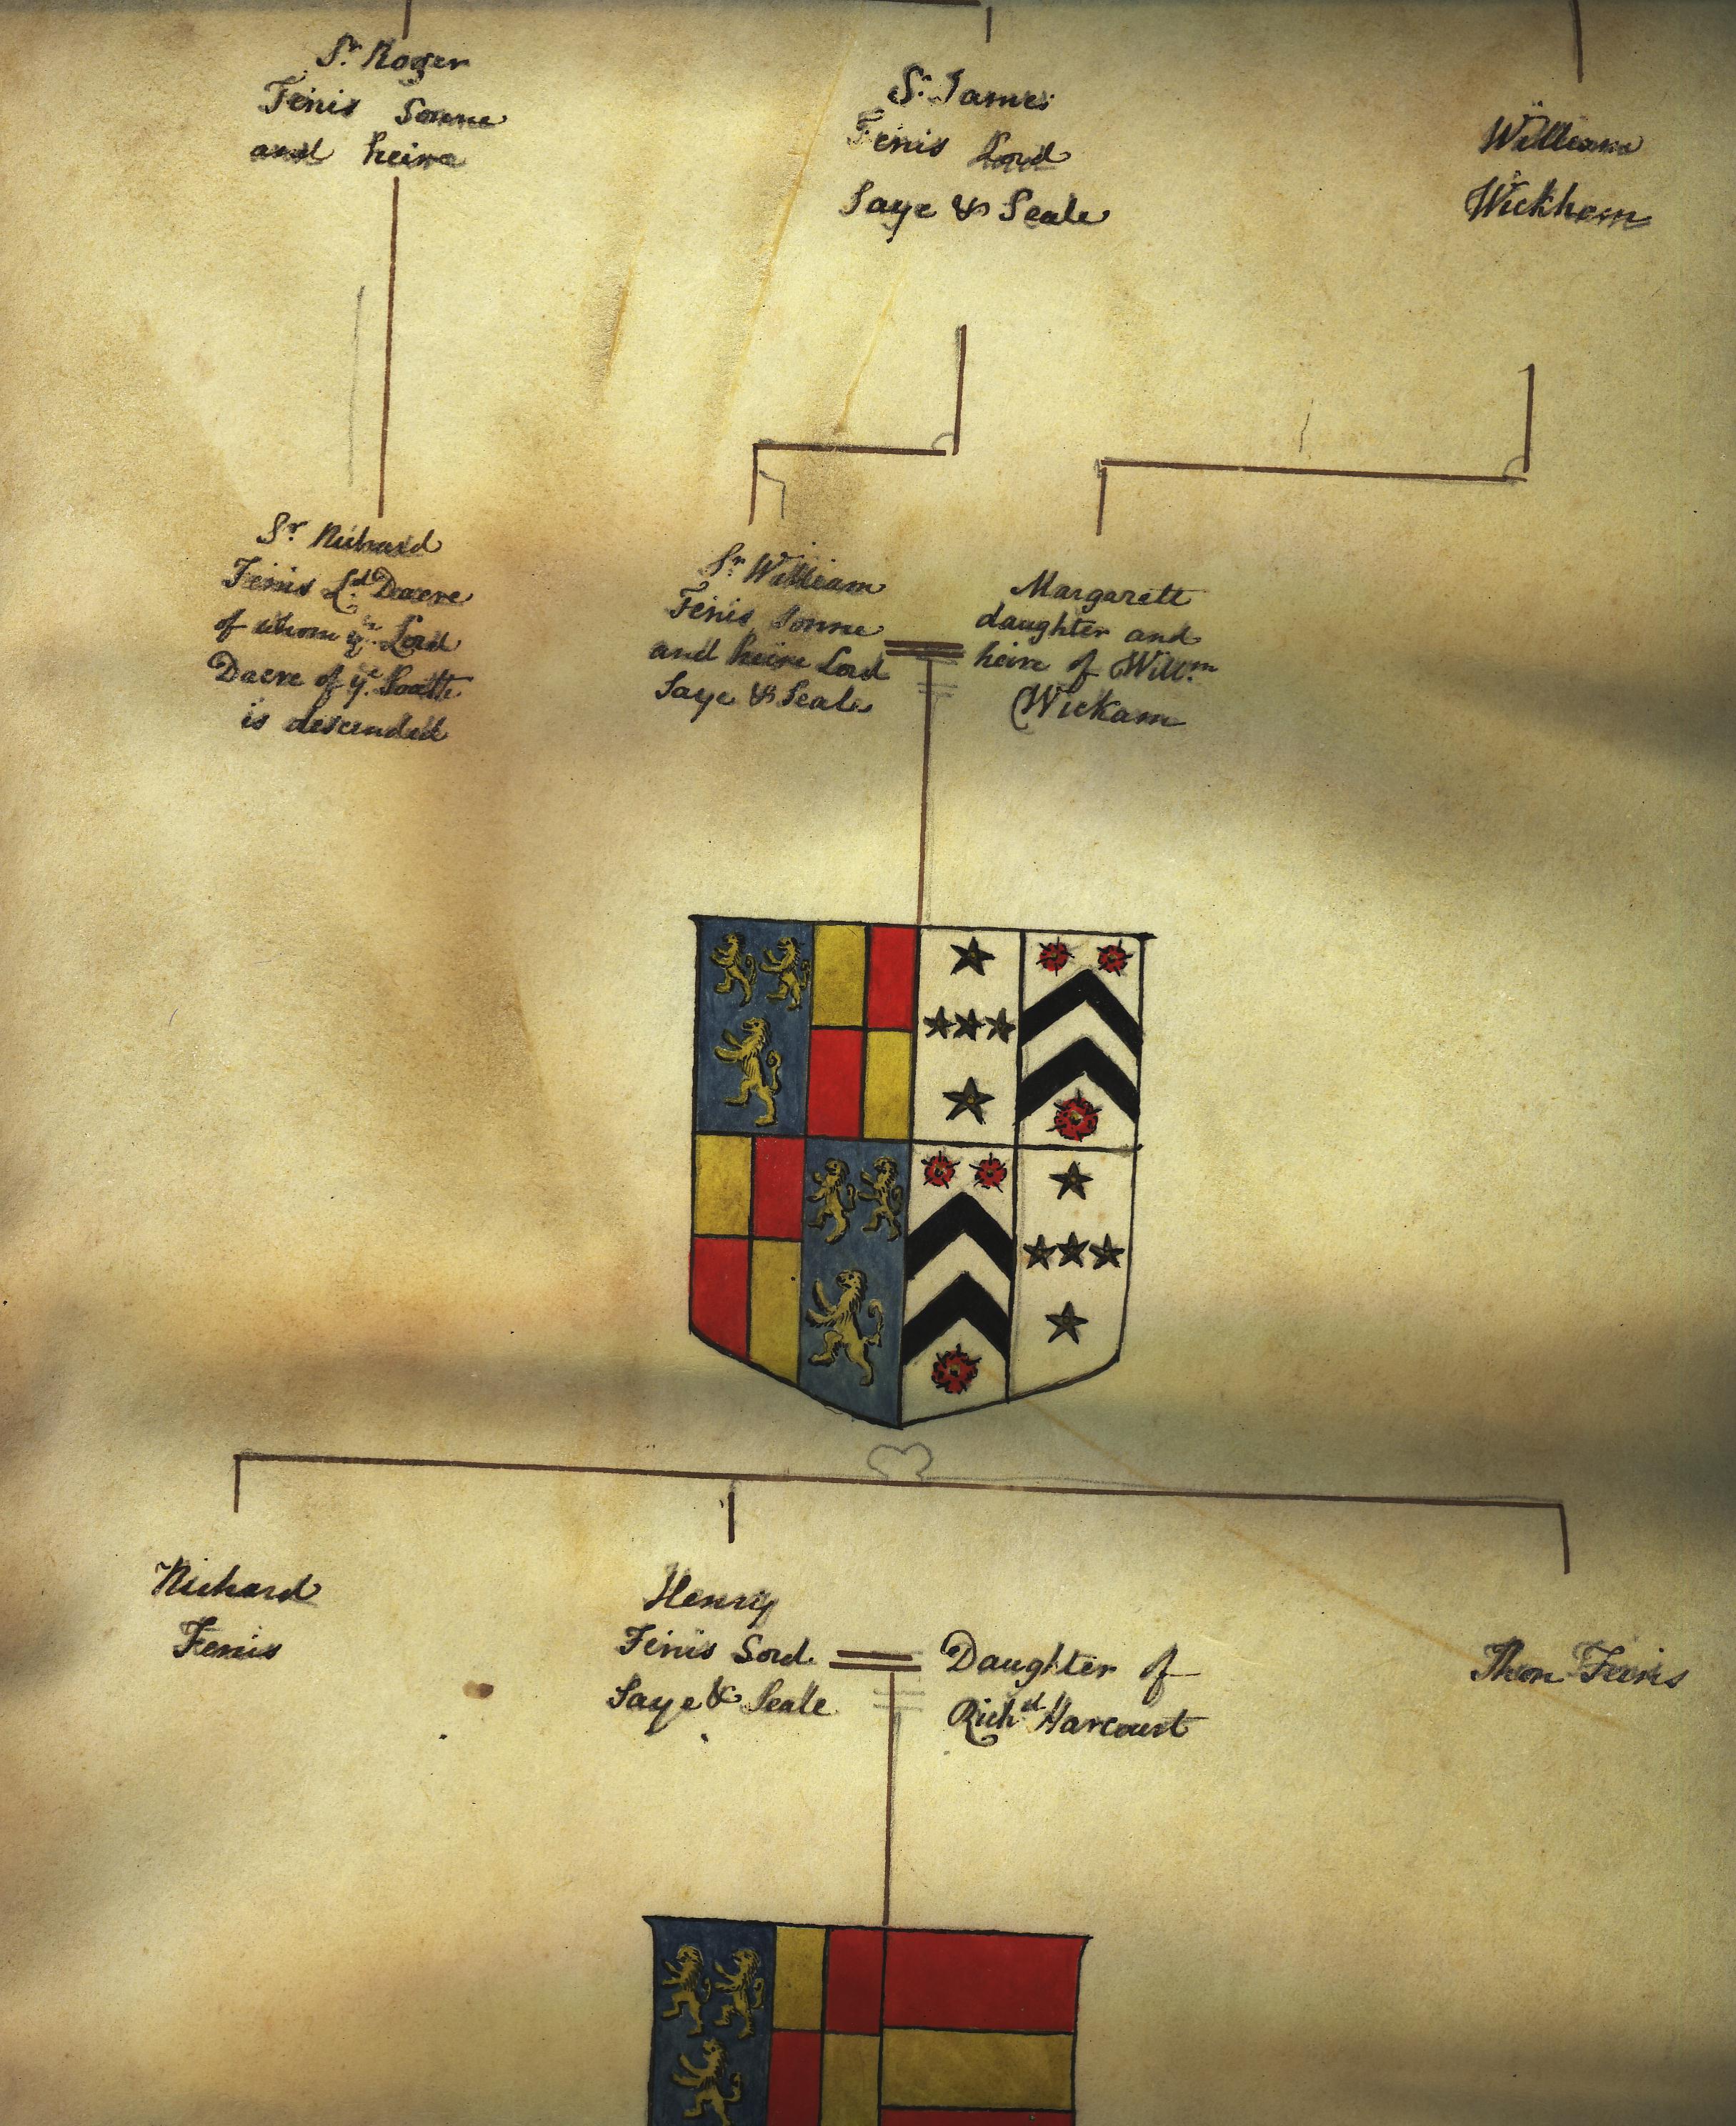 Sr Roger
Fenis Sonne
and heire
Sr James
Fenis Lord
Saye & Seale
William
Wickham
Sr Richard
Fenis Ld Dacre
of whom ye Lord
Dacre of ye South
is descended
Sr William
Fenis Sonne
and heire Lord
Saye & Seale
Margarett
daughter and
heire of Willm
Wickam
Richard
Fenis
Henry
Finis Lord
Saye & Seale
Daughter of
Richd Harcourt
Thom Fenis